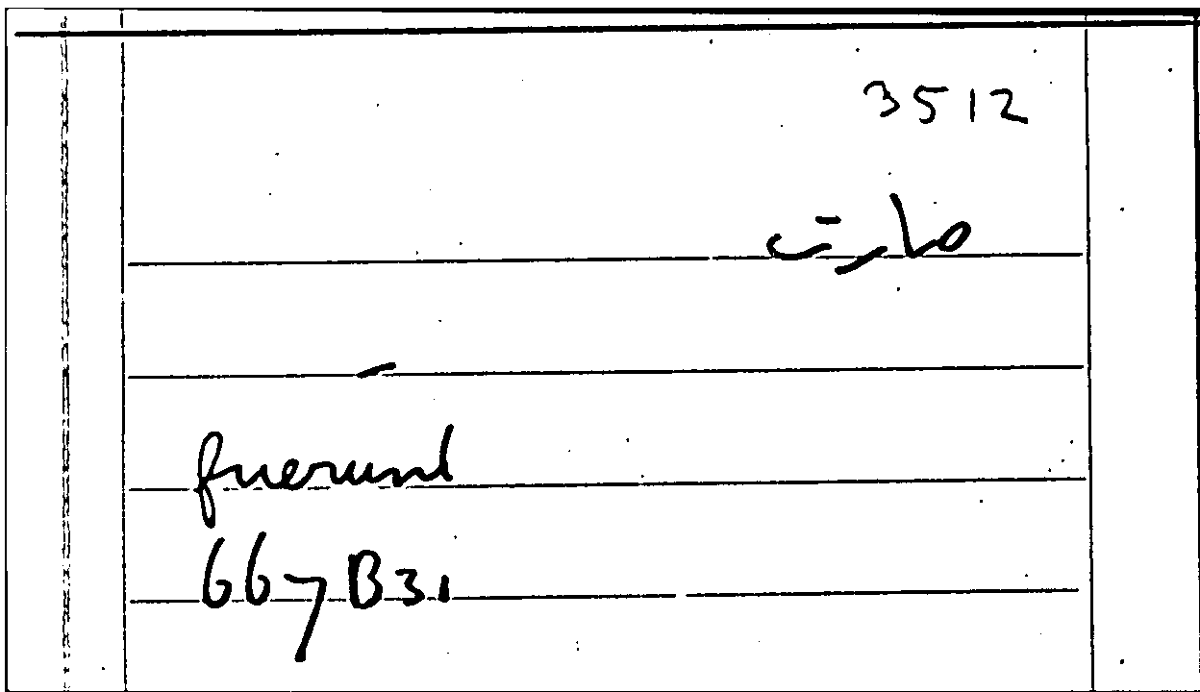 3512
صارت
fuerunt
667B31